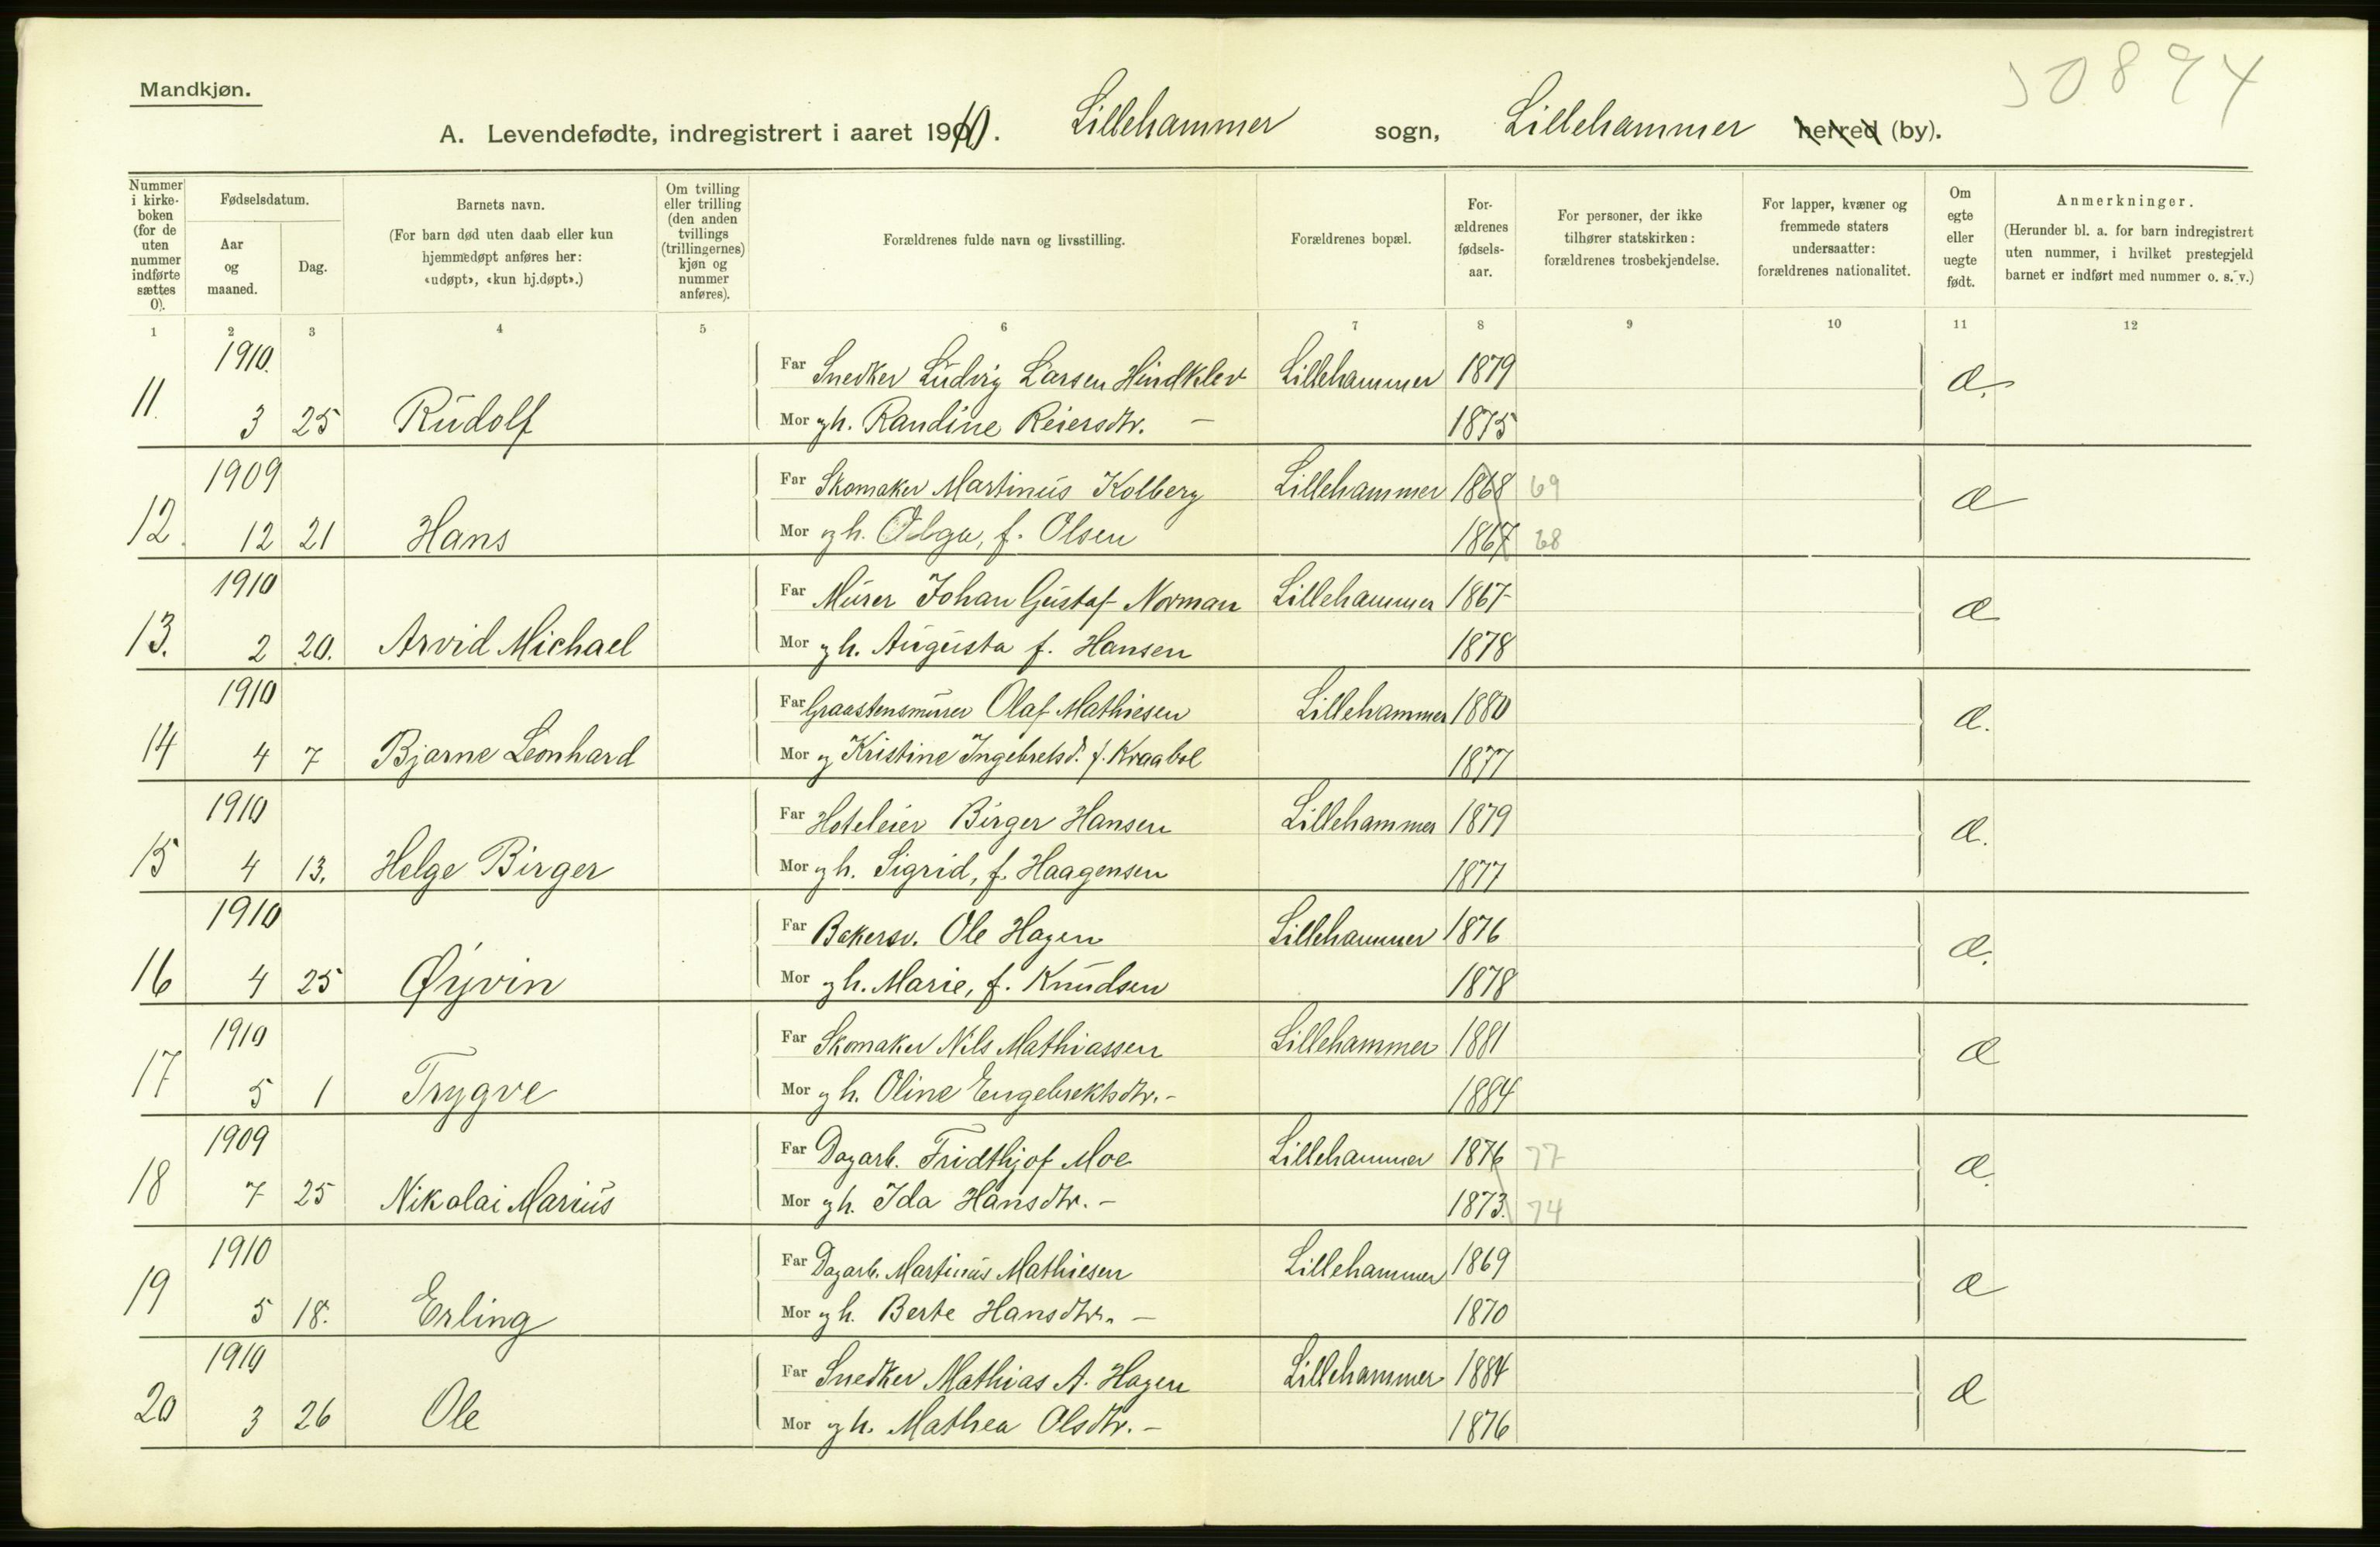 50894
Mandkjøn.
A. Levendefødte, indregistrert i aaret 1910. Lillehammer sogn, Lillehammer herred (by).
Nummer i kirkeboken (for de uten nummer indførte sættes 0).
Fødselsdatum.
Aar og maaned.
Dag.
Barnets navn.
(For barn død uten daab eller kun hjemmedøpt anføres her: «udøpt», «kun hj.døpt».)
Om tvilling eller trilling (den anden tvillings (trillingernes) kjøn og nummer anføres).
Forældrenes fulde navn og livsstilling.
Forældrenes bopæl.
Forældrenes fødselsaar.
For personer, der ikke tilhører statskirken: forældrenes trosbekjendelse.
For lapper, kvæner og fremmede staters undersaatter: forældrenes nationalitet.
Om egte eller uegte født.
Anmerkninger.
(Herunder bl. a. for barn indregistrert uten nummer, i hvilket prestegjeld barnet er indført med nummer o. s. v.)
1 2 3 4 5 6 7 8 9 10 11 12
1910. Far Snedker Ludvig Larsen Hindklev Lillehammer 1879 Æ.
11. 3 25 Rudolf Mor og h. Randine Reiersdtr. — 1875
1909 Far Skomaker Martinus Kolberg Lillehammer 1868 69 Æ
12. 12 21 Hans Mor og h. Olga, f. Olsen 1867 68
1910 Far Murer Johan Gustaf Norman Lillehammer 1867 Æ
13. 2 20. Arvid Michael Mor og h. Augusta f. Hansen 1878
1910 Far Graastensmurer Olaf Mathiesen Lillehammer 1880 Æ.
14 4 7 Bjarne Leonhard Mor og Kristine Ingebretsd. f. Kraabøl 1877
1910 Far Hoteleier Birger Hansen Lillehammer 1879 Æ.
15 4 13. Helge Birger Mor og h. Sigrid, f. Haagensen 1877
1910 Far Bakersv. Ole Hagen Lillehammer 1876 Æ.
16 4 25 Øyvin Mor og h. Marie, f. Knudsen 1878
1910 Far Skomaker Nils Mathiassen Lillehammer 1881 Æ
17 5 1 Trygve Mor og h. Oline Engebrektsdtr. - 1884
1909 Far Dagarb. Fridthjof Moe Lillehammer 1876 77 Æ.
18 7 25 Nikolai Marius Mor og h. Ida Hansdtr. - 1873. 74
1910 Far Dagarb. Martinus Mathiesen Lillehammer 1869 Æ
19 5 18. Erling Mor og h. Berte Hansdtr. — 1870
1910 Far Snedker Mathias A. Hagen Lillehammer 1884 Æ
20 3 26 Ole Mor og h. Mathea Olsdtr. - 1876